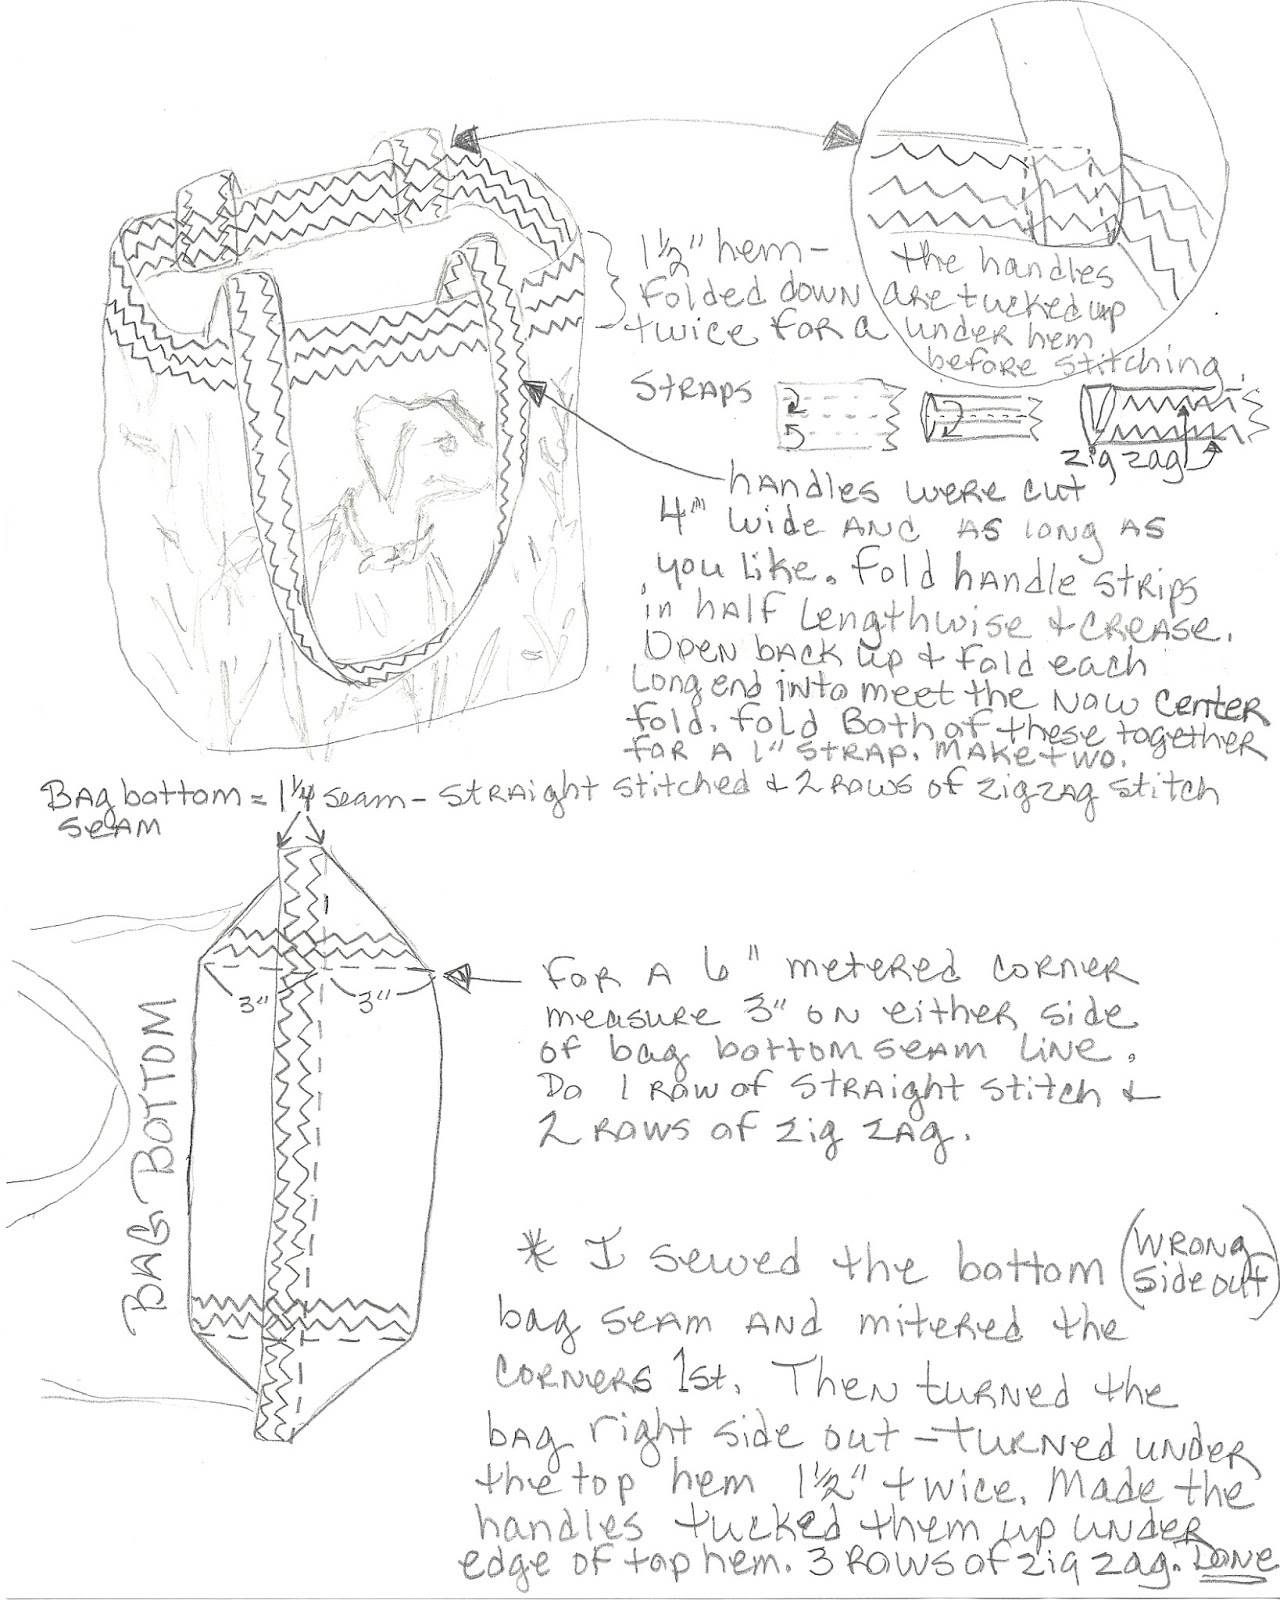 1½" hem-
folded down
twice for a
the handles
are tucked up
under hem
before stitching.
Straps
zig zag
handles were cut
4" wide and as long as
you like. Fold handle strips
in half lengthwise + crease.
Open back up + fold each
long end into meet the now center
fold. fold both of these together
for a 1" strap. Make two.
Bag bottom = 1¼ seam - straight stitched + 2 rows of zigzag stitch
seam
3" 3"
BAG BOTTOM
For a 6" metered corner
measure 3" on either side
of bag bottom seam line.
Do 1 row of straight stitch +
2 rows of zig zag.
* I sewed the bottom (wrong
side out)
bag seam and mitered the
corners 1st. Then turned the
bag right side out - turned under
the top hem 1½" twice. Made the
handles tucked them up under
edge of top hem. 3 rows of zig zag. Done